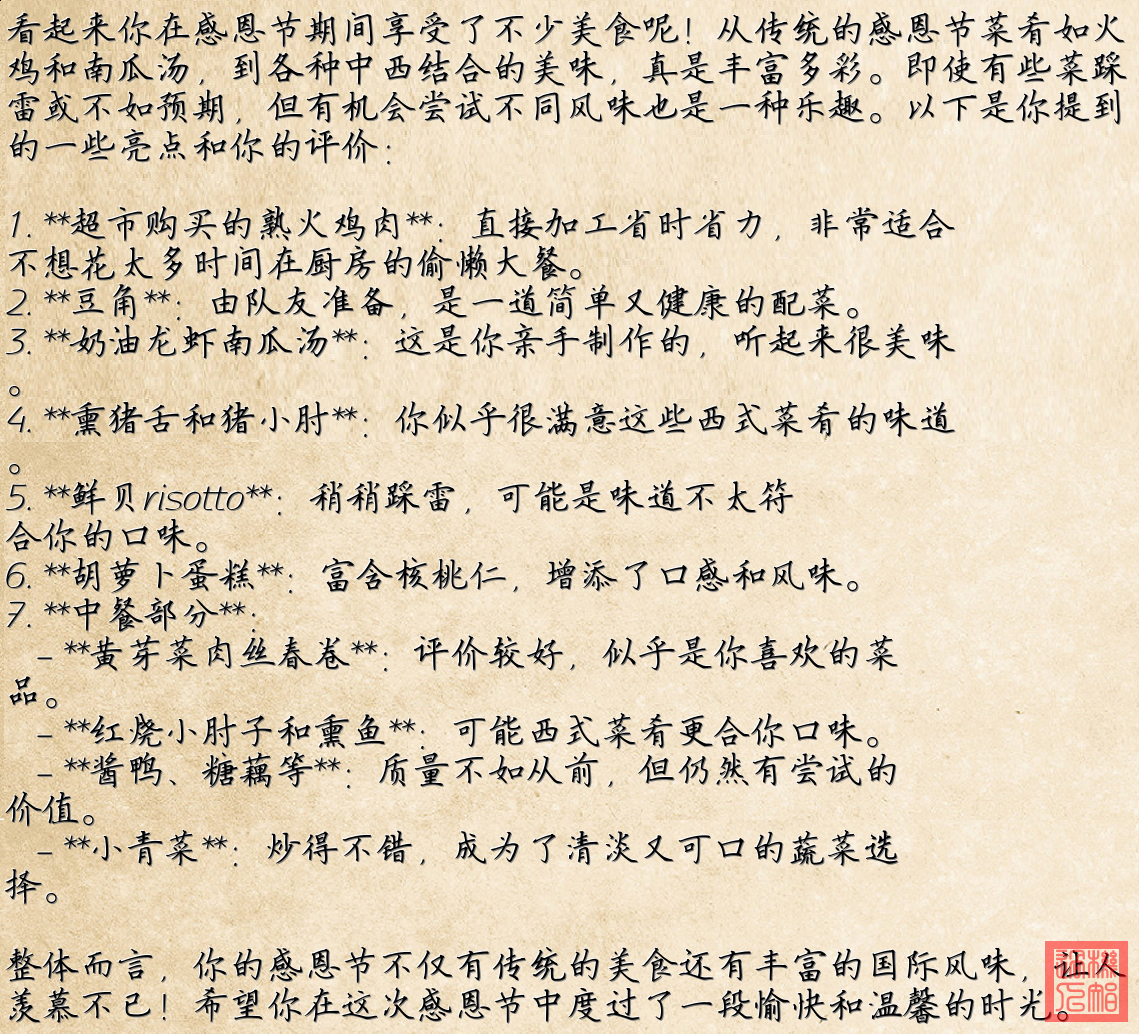 看起来你在感恩节期间享受了不少美食呢！从传统的感恩节菜肴如火
鸡和南瓜汤，到各种中西结合的美味，真是丰富多彩。即使有些菜踩
雷或不如预期，但有机会尝试不同风味也是一种乐趣。以下是你提到
的一些亮点和你的评价：
1. **超市购买的熟火鸡肉**：直接加工省时省力，非常适合
不想花太多时间在厨房的偷懒大餐。
2. **豆角**：由队友准备，是一道简单又健康的配菜。
3. **奶油龙虾南瓜汤**：这是你亲手制作的，听起来很美味
。
4. **熏猪舌和猪小肘**：你似乎很满意这些西式菜肴的味道
。
5. **鲜贝risotto**：稍稍踩雷，可能是味道不太符
合你的口味。
6. **胡萝卜蛋糕**：富含核桃仁，增添了口感和风味。
7. **中餐部分**：
- **黄芽菜肉丝春卷**：评价较好，似乎是你喜欢的菜
品。
- **红烧小肘子和熏鱼**：可能西式菜肴更合你口味。
- **酱鸭、糖藕等**：质量不如从前，但仍然有尝试的
价值。
- **小青菜**：炒得不错，成为了清淡又可口的蔬菜选
择。
整体而言，你的感恩节不仅有传统的美食还有丰富的国际风味，让人
羡慕不已！希望你在这次感恩节中度过了一段愉快和温馨的时光。